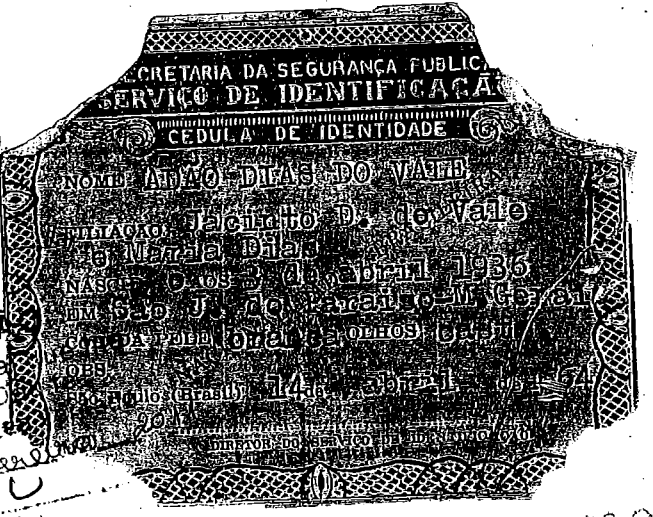 ECRETARIA DA SEGURANÇA PUBLICA
SERVIÇO DE IDENTIFICAÇÃO
CEDULA DE IDENTIDADE
NOME ADÃO DIAS DO VALE
FILIAÇÃO Jacinto D. do Vale
e Maria Dias
NASCIDO aos 3 de abril 1936
EM São J. do Paraiso-M.Gerai
COR DA PELE branca OLHOS cast
OBS
São Paulo (Brasil), 14 de abril de
DIRETOR DO SERVIÇO DE IDENTIFICAÇÃO